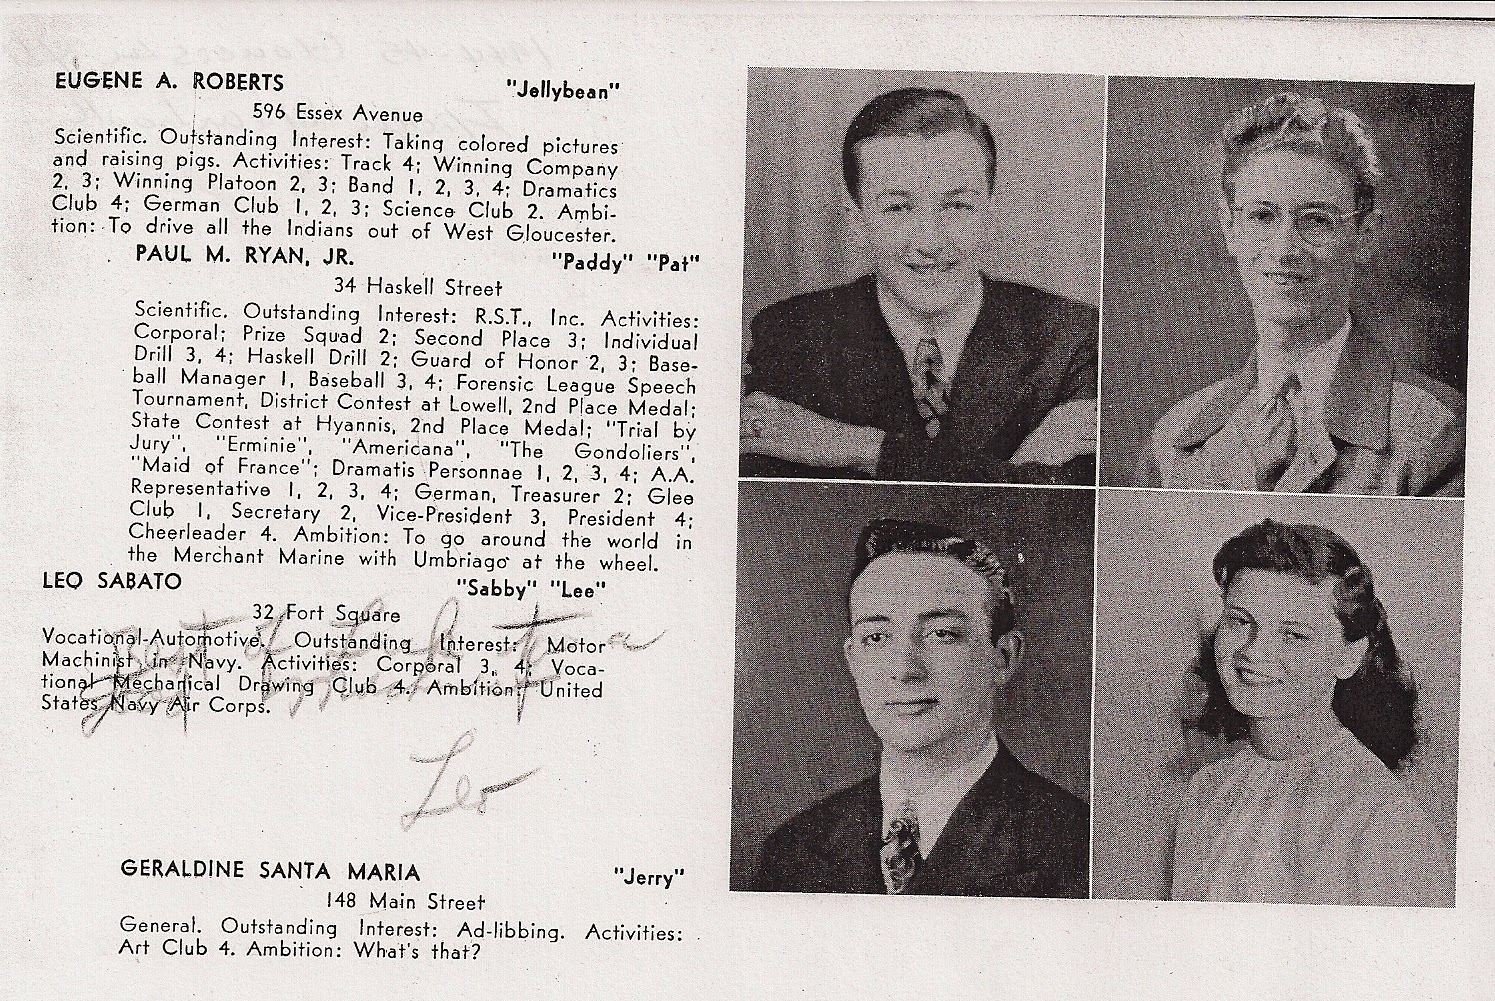 EUGENE A. ROBERTS "Jellybean"
596 Essex Avenue
Scientific. Outstanding Interest: Taking colored pictures
and raising pigs. Activities: Track 4; Winning Company
2, 3; Winning Platoon 2, 3; Band 1, 2, 3, 4; Dramatics
Club 4; German Club 1, 2, 3; Science Club 2. Ambi-
tion: To drive all the Indians out of West Gloucester.
PAUL M. RYAN, JR. "Paddy" "Pat"
34 Haskell Street
Scientific. Outstanding Interest: R.S.T., Inc. Activities:
Corporal; Prize Squad 2; Second Place 3; Individual
Drill 3, 4; Haskell Drill 2; Guard of Honor 2, 3; Base-
ball Manager 1, Baseball 3, 4; Forensic League Speech
Tournament, District Contest at Lowell, 2nd Place Medal;
State Contest at Hyannis, 2nd Place Medal; "Trial by
Jury", "Erminie", "Americana", "The Gondoliers",
"Maid of France"; Dramatis Personnae 1, 2, 3, 4; A.A.
Representative 1, 2, 3, 4; German, Treasurer 2; Glee
Club 1, Secretary 2, Vice-President 3, President 4;
Cheerleader 4. Ambition: To go around the world in
the Merchant Marine with Umbriago at the wheel.
LEO SABATO "Sabby" "Lee"
32 Fort Square
Vocational-Automotive. Outstanding Interest: Motor
Machinist in Navy. Activities: Corporal 3, 4; Voca-
tional Mechanical Drawing Club 4. Ambition: United
States Navy Air Corps.
Best of Luck to a
Leo
GERALDINE SANTA MARIA "Jerry"
148 Main Street
General. Outstanding Interest: Ad-libbing. Activities:
Art Club 4. Ambition: What's that?